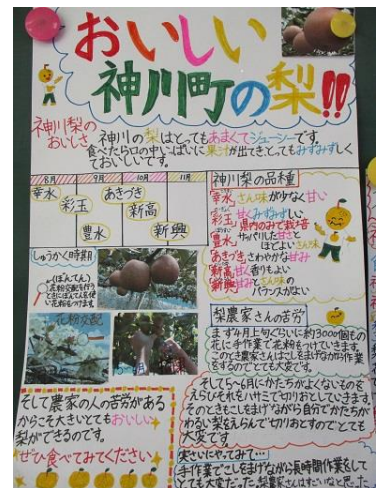 おいしい
神川町の梨!!
神川梨の
おいしさ
神川の梨はとってもあまくてジューシーです。
食べたら口の中いっぱいに果汁が出てきとってもみずみずしく
ておいしいです。
8月 9月 10月 11月
幸水
彩玉
豊水
あきづき
新高
新興
しゅうかく時期
(ぼんてん)
花粉交配
神川梨の品種
「幸水」さん味が少なく甘い
「彩玉」甘くみずみずしい
県内のみで栽培
「豊水」サッパリした甘さと
ほどよいさん味
「あきづき」さわやかな甘み
「新高」甘く香りもよい
「新興」甘みとさん味の
バランスがよい
梨農家さんの苦労
まず4月上旬ぐらいに約3000個もの
花に手作業で花粉をつけていきます。
このとき農家さんはこしをまげながら作業を
するのでとても大変です。
そして5〜6月にかたちがよくないものを
えらびそれをハサミで切りおとしていきます
そのときもこしをまげながら自分でかたちが
わるい梨をえらんで切りおとすのでとても
大変です
実さいにやってみて…
手作業でこしをまげながら長時間作業をして
とても大変だった。梨農家さんはすごいなと思った
そして農家の人の苦労がある
からこそ大きいとてもおいしい
梨ができるのです。
ぜひ食べてみてください